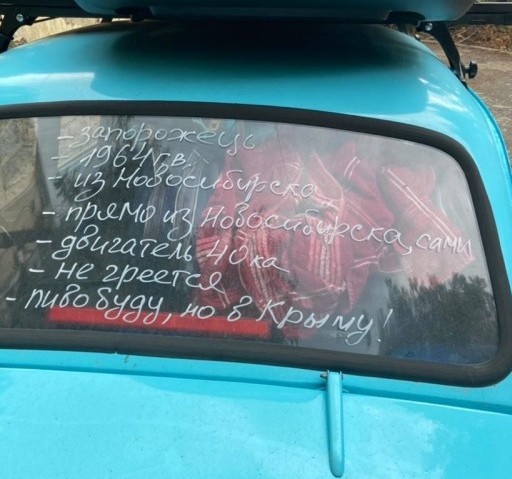 - запорожець
- 1964г.в.
- из Новосибирска
- прямо из Новосибирска, сами
- двигатель 40ка
- не греется
- пиво буду, но в Крыму!